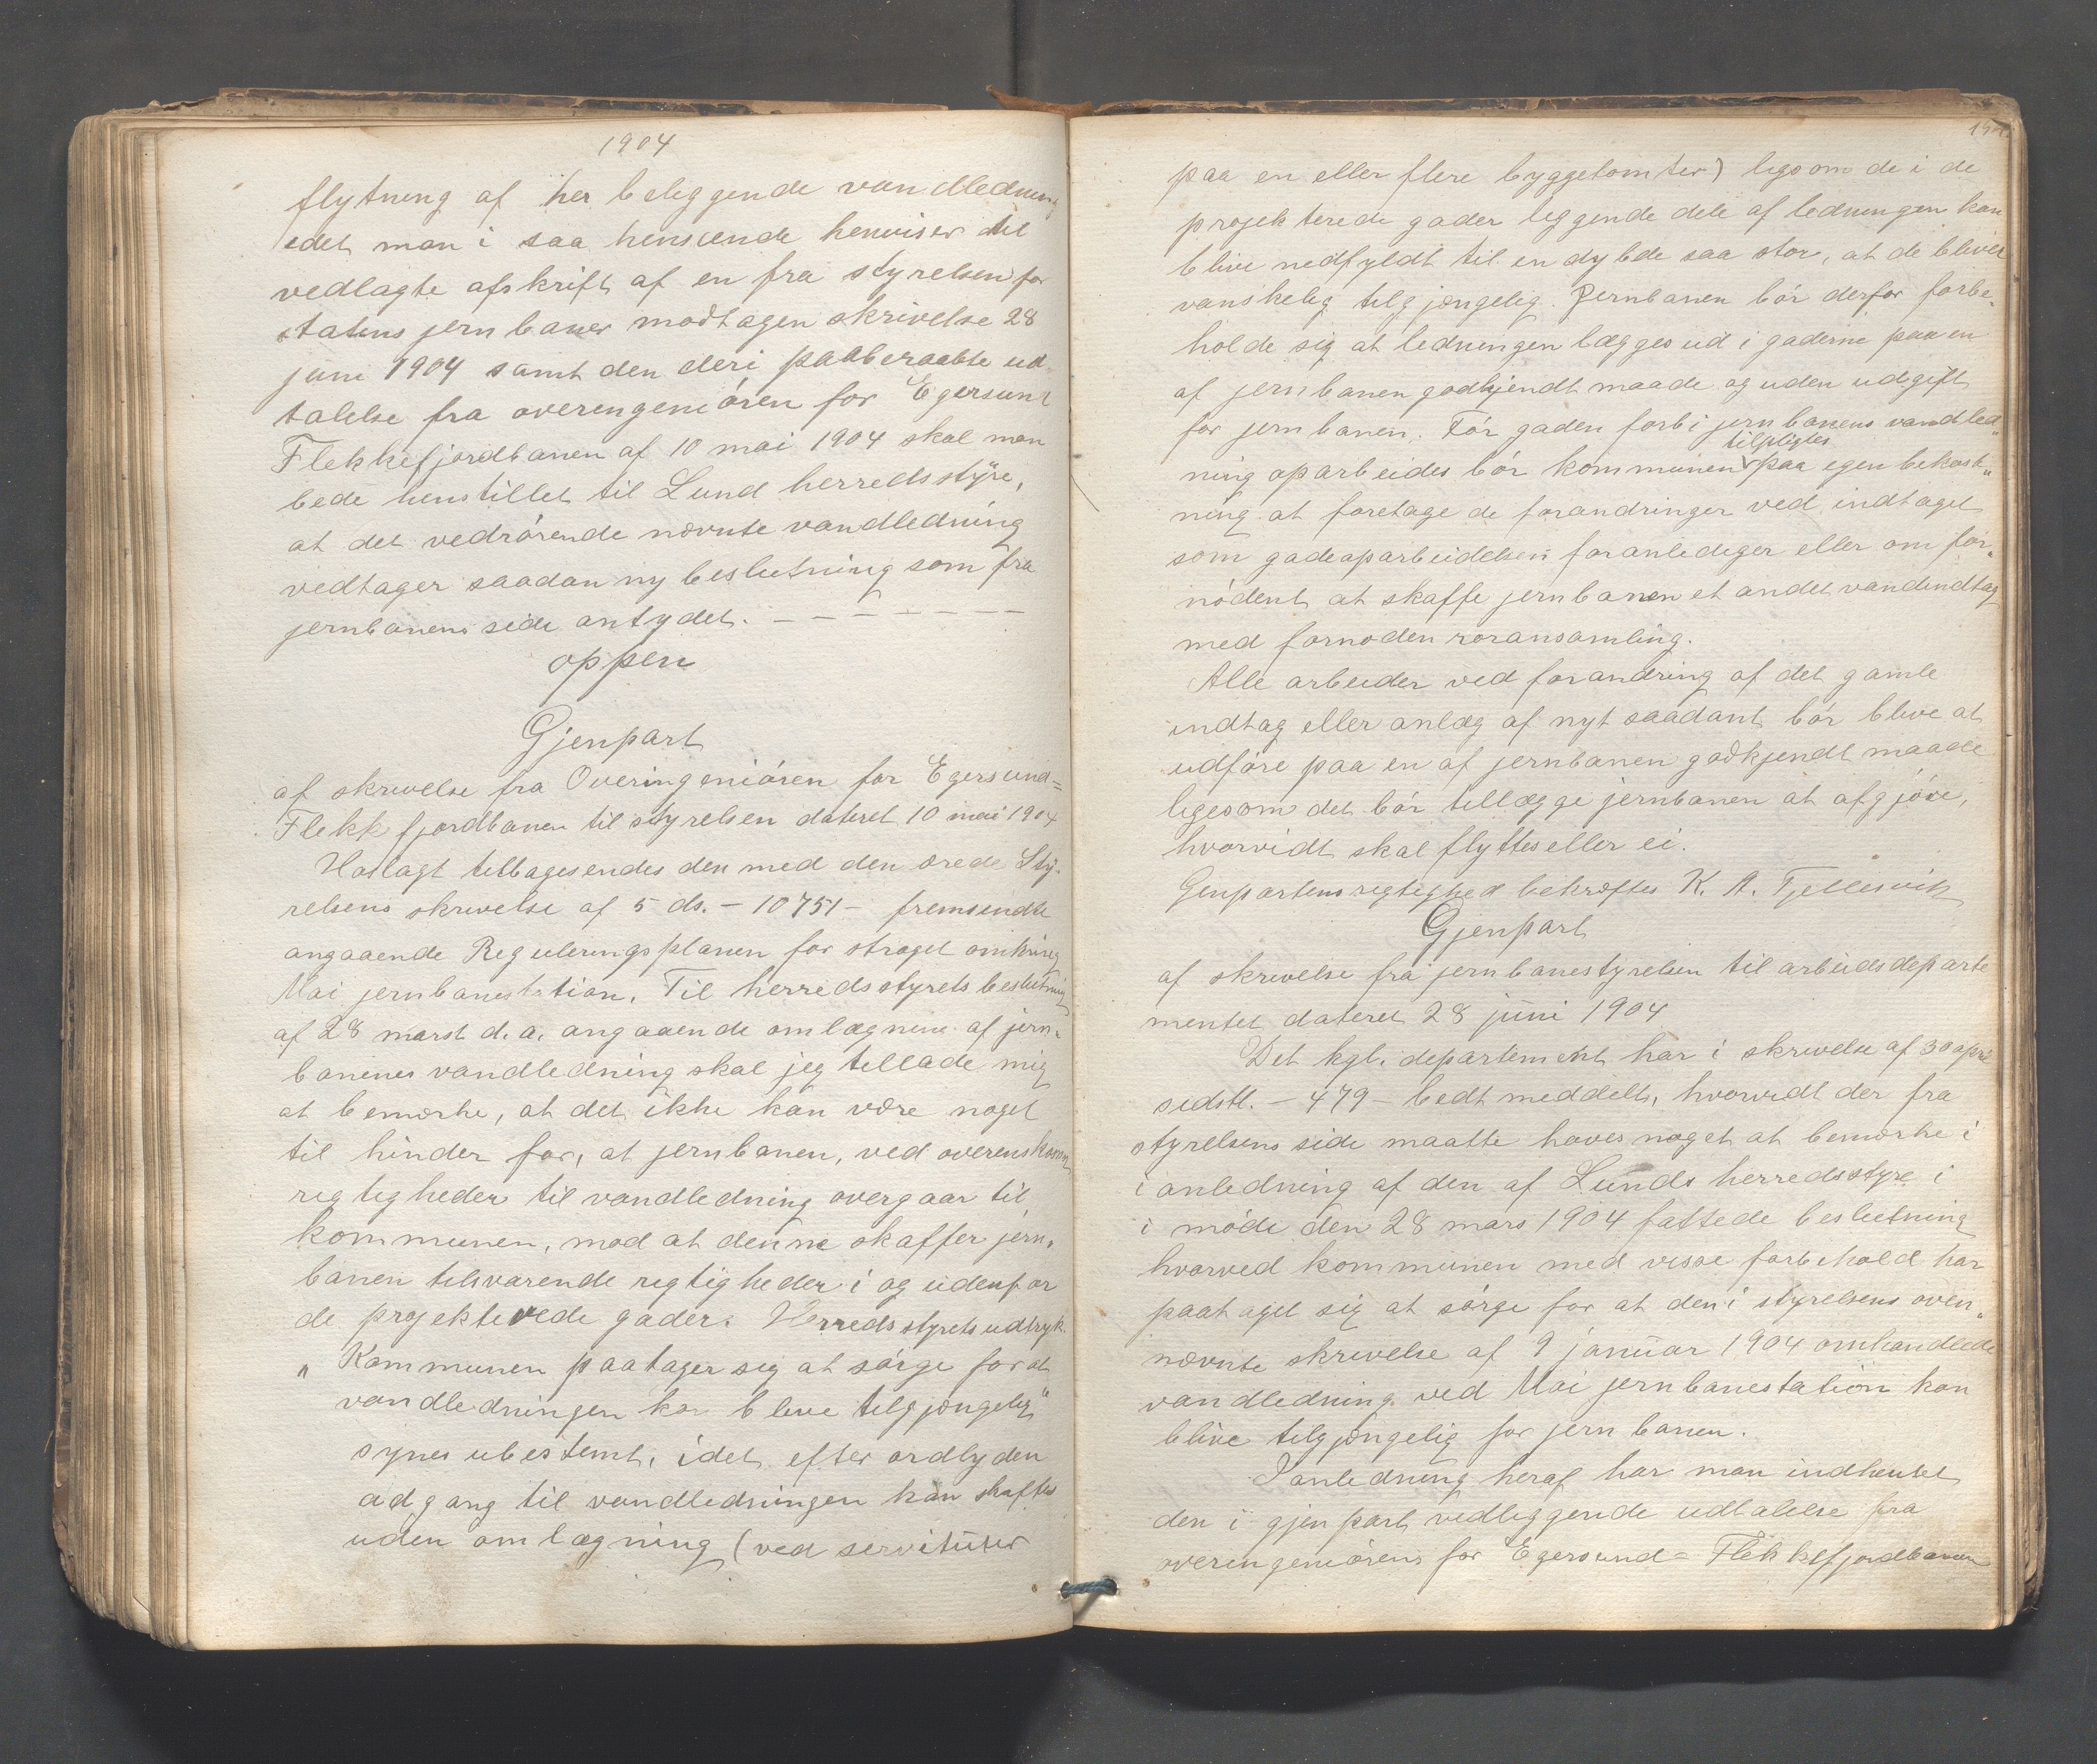 1904
flytning af her beliggende vandledning
idet man i saa henseende henviser til
vedlagte afskrift af en fra styrelsen for
statens jernbaner modtagen skrivelse 28
juni 1904 samt den deri paaberaabte ud-
talelse fra overingeniøren for Egersund
Flekkefjordbanen af 10 mai 1904 skal man
bede henstillet til Lund herredsstyre,
at det vedrørende nævnte vandledning
vedtager saadan ny beslutning som fra
jernbanens side antydet. — — — — — — —
oppen
Gjenpart
af skrivelse fra Overingeniøren for Egersund=
Flekkfjordbanen til styrelsen dateret 10 mai 1904
Hoslagt tilbagesendes den med den ærede Sty-
relsens skrivelse af 5 ds. – 10751 – fremsendte
angaaende Reguleringsplanen for strøget omkring
Moi jernbanestation. Til herredsstyrets beslutning
af 28 marst d.a. angaaende omlægning af jern-
banenes vandledning skal jeg tillade mig
at bemærke, at det ikke kan være noget
til hinder for, at jernbanen, ved overenskomst
rigtigheder til vandledning overgaar til
kommunen, mod at denne skaffer jern-
banen tilsvarende rigtigheder i og udenfor
de projekterede gader. Herredsstyrets udtryk.
„Kommunen paatager sig at sørge for at
vandledningen kan blive tilgjængelig"
synes ubestemt, idet efter ordlyden
adgang til vandledningen kan skaffes
uden omlægning (ved servituter
paa en eller flere byggetomter) ligsom de i de
projekterede gader liggende dele af ledningen kan
blive nedfyldt til en dybde saa stor, at de bliver
vanskelig tilgjængelig. Jernbanen bør derfor forbe-
holde sig at ledningen lægges ud i gaderne paa en
af jernbanen godkjendt maade og uden udgift
for jernbanen. Før gaden forbi jernbanens vandled-
tilpligtes
ning oparbeides bør kommunen paa egen bekost-
ning at foretage de forandringer ved indtaget
som gadeoparbeidelsen foranlediger eller om for-
nødent at skaffe jernbanen et andet vandindtag
med fornøden røransamling.
Alle arbeider ved forandring af det gamle
indtag eller anlæg af nyt saadant bør blive at
udføre paa en af jernbanen godkjendt maade
ligesom det bør tillægge jernbanen at afgjøre,
hvorvidt skal flyttes eller ei.
Genpartens rigtighed bekræftes K. A. Tjellesvik
Gjenpart
af skrivelse fra jernbanestyrelsen til arbeidsdeparte
mentet dateret 28 juni 1904
Det kgl. departement har i skrivelse af 30 april
sidstl. – 479 – bedt meddelt, hvorvidt der fra
styrelsens side maatte haves noget at bemærke i
i anledning af den af Lunds herredsstyre i
i møde den 28 mars 1904 fattede beslutning
hvorved kommunen med visse forbehold har
paataget sig at sørge for at den i styrelsens oven-
nævnte skrivelse af 9 januar 1904 omhandlede
vandledning ved Moi jernbanestation kan
blive tilgjængelig for jernbanen.
I anledning heraf har man indhentet
den i gjenpart vedliggende udtalelse fra
overingeniørens for Egersund= Flekkefjordbanen